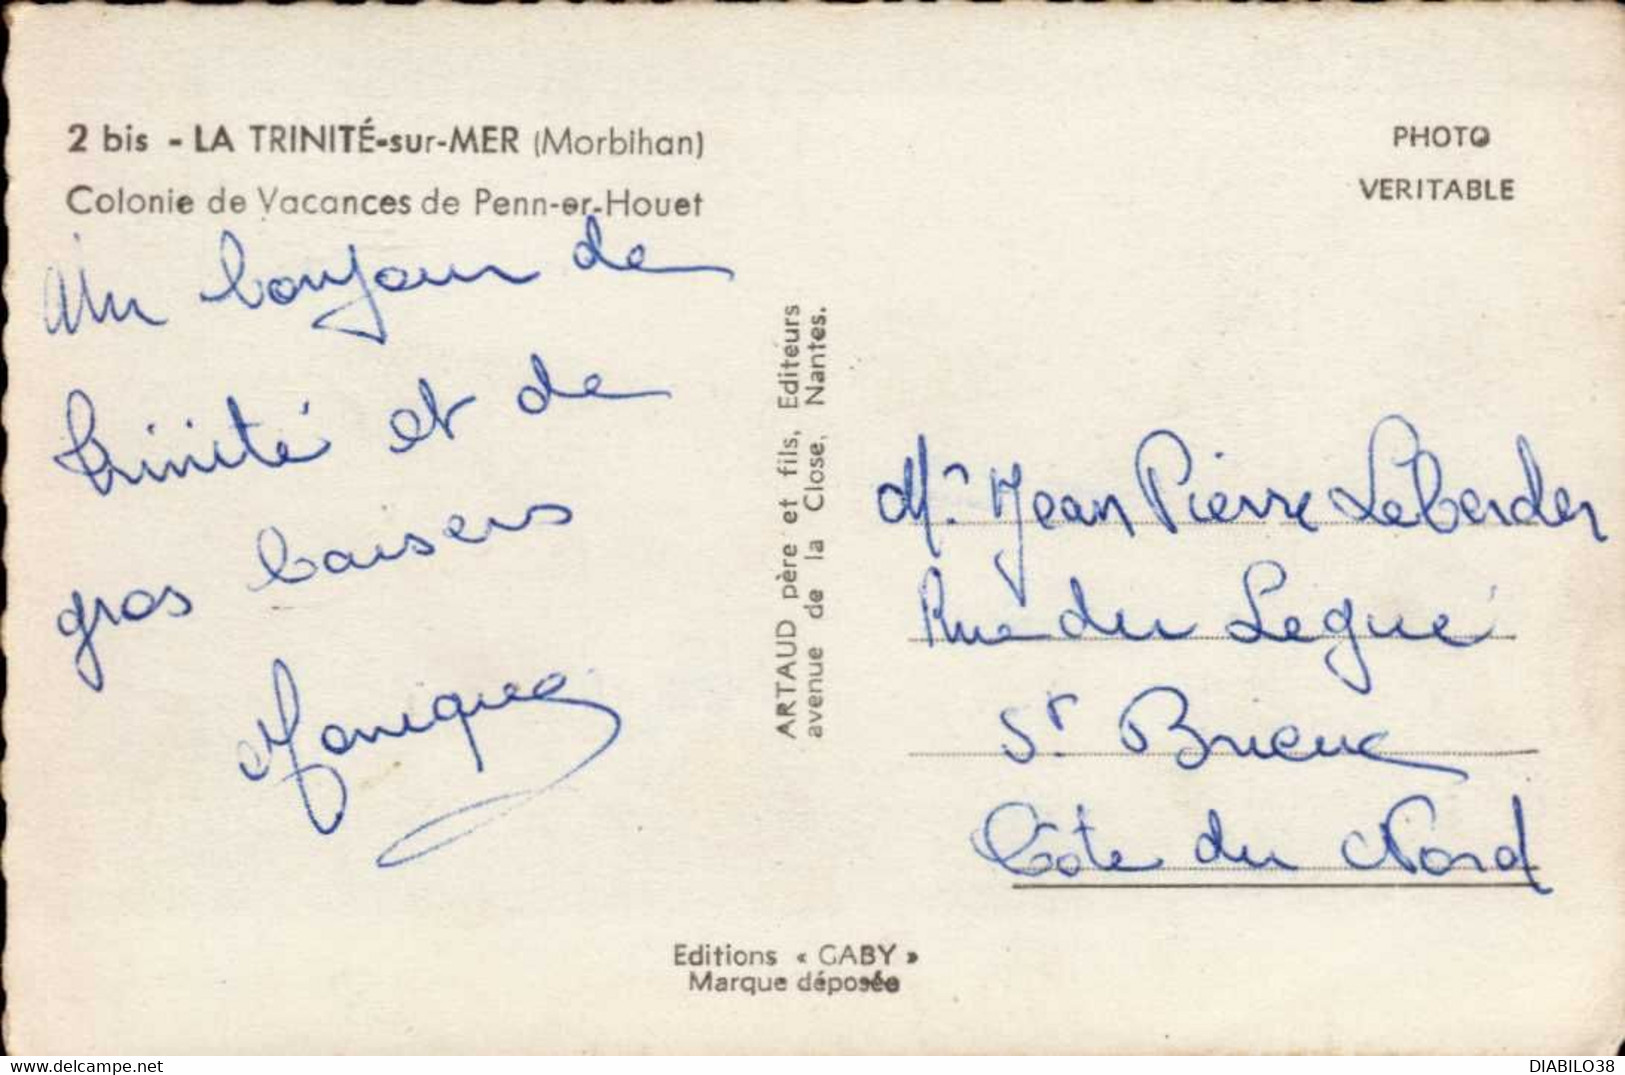 2 bis - LA TRINITÉ-sur-MER (Morbihan)
Colonie de Vacances de Penn-er-Houet
Un bonjour de
Trinité et de
gros baisers
ARTAUD père et fils, Editeurs
avenue de la Close, Nantes.
PHOTO
VERITABLE
Mr Jean Pierre Leberder
Rue du Legué
St Brieuc
Côte du Nord
Editions « GABY »
Marque déposée
delcampe.net
DIABILO38